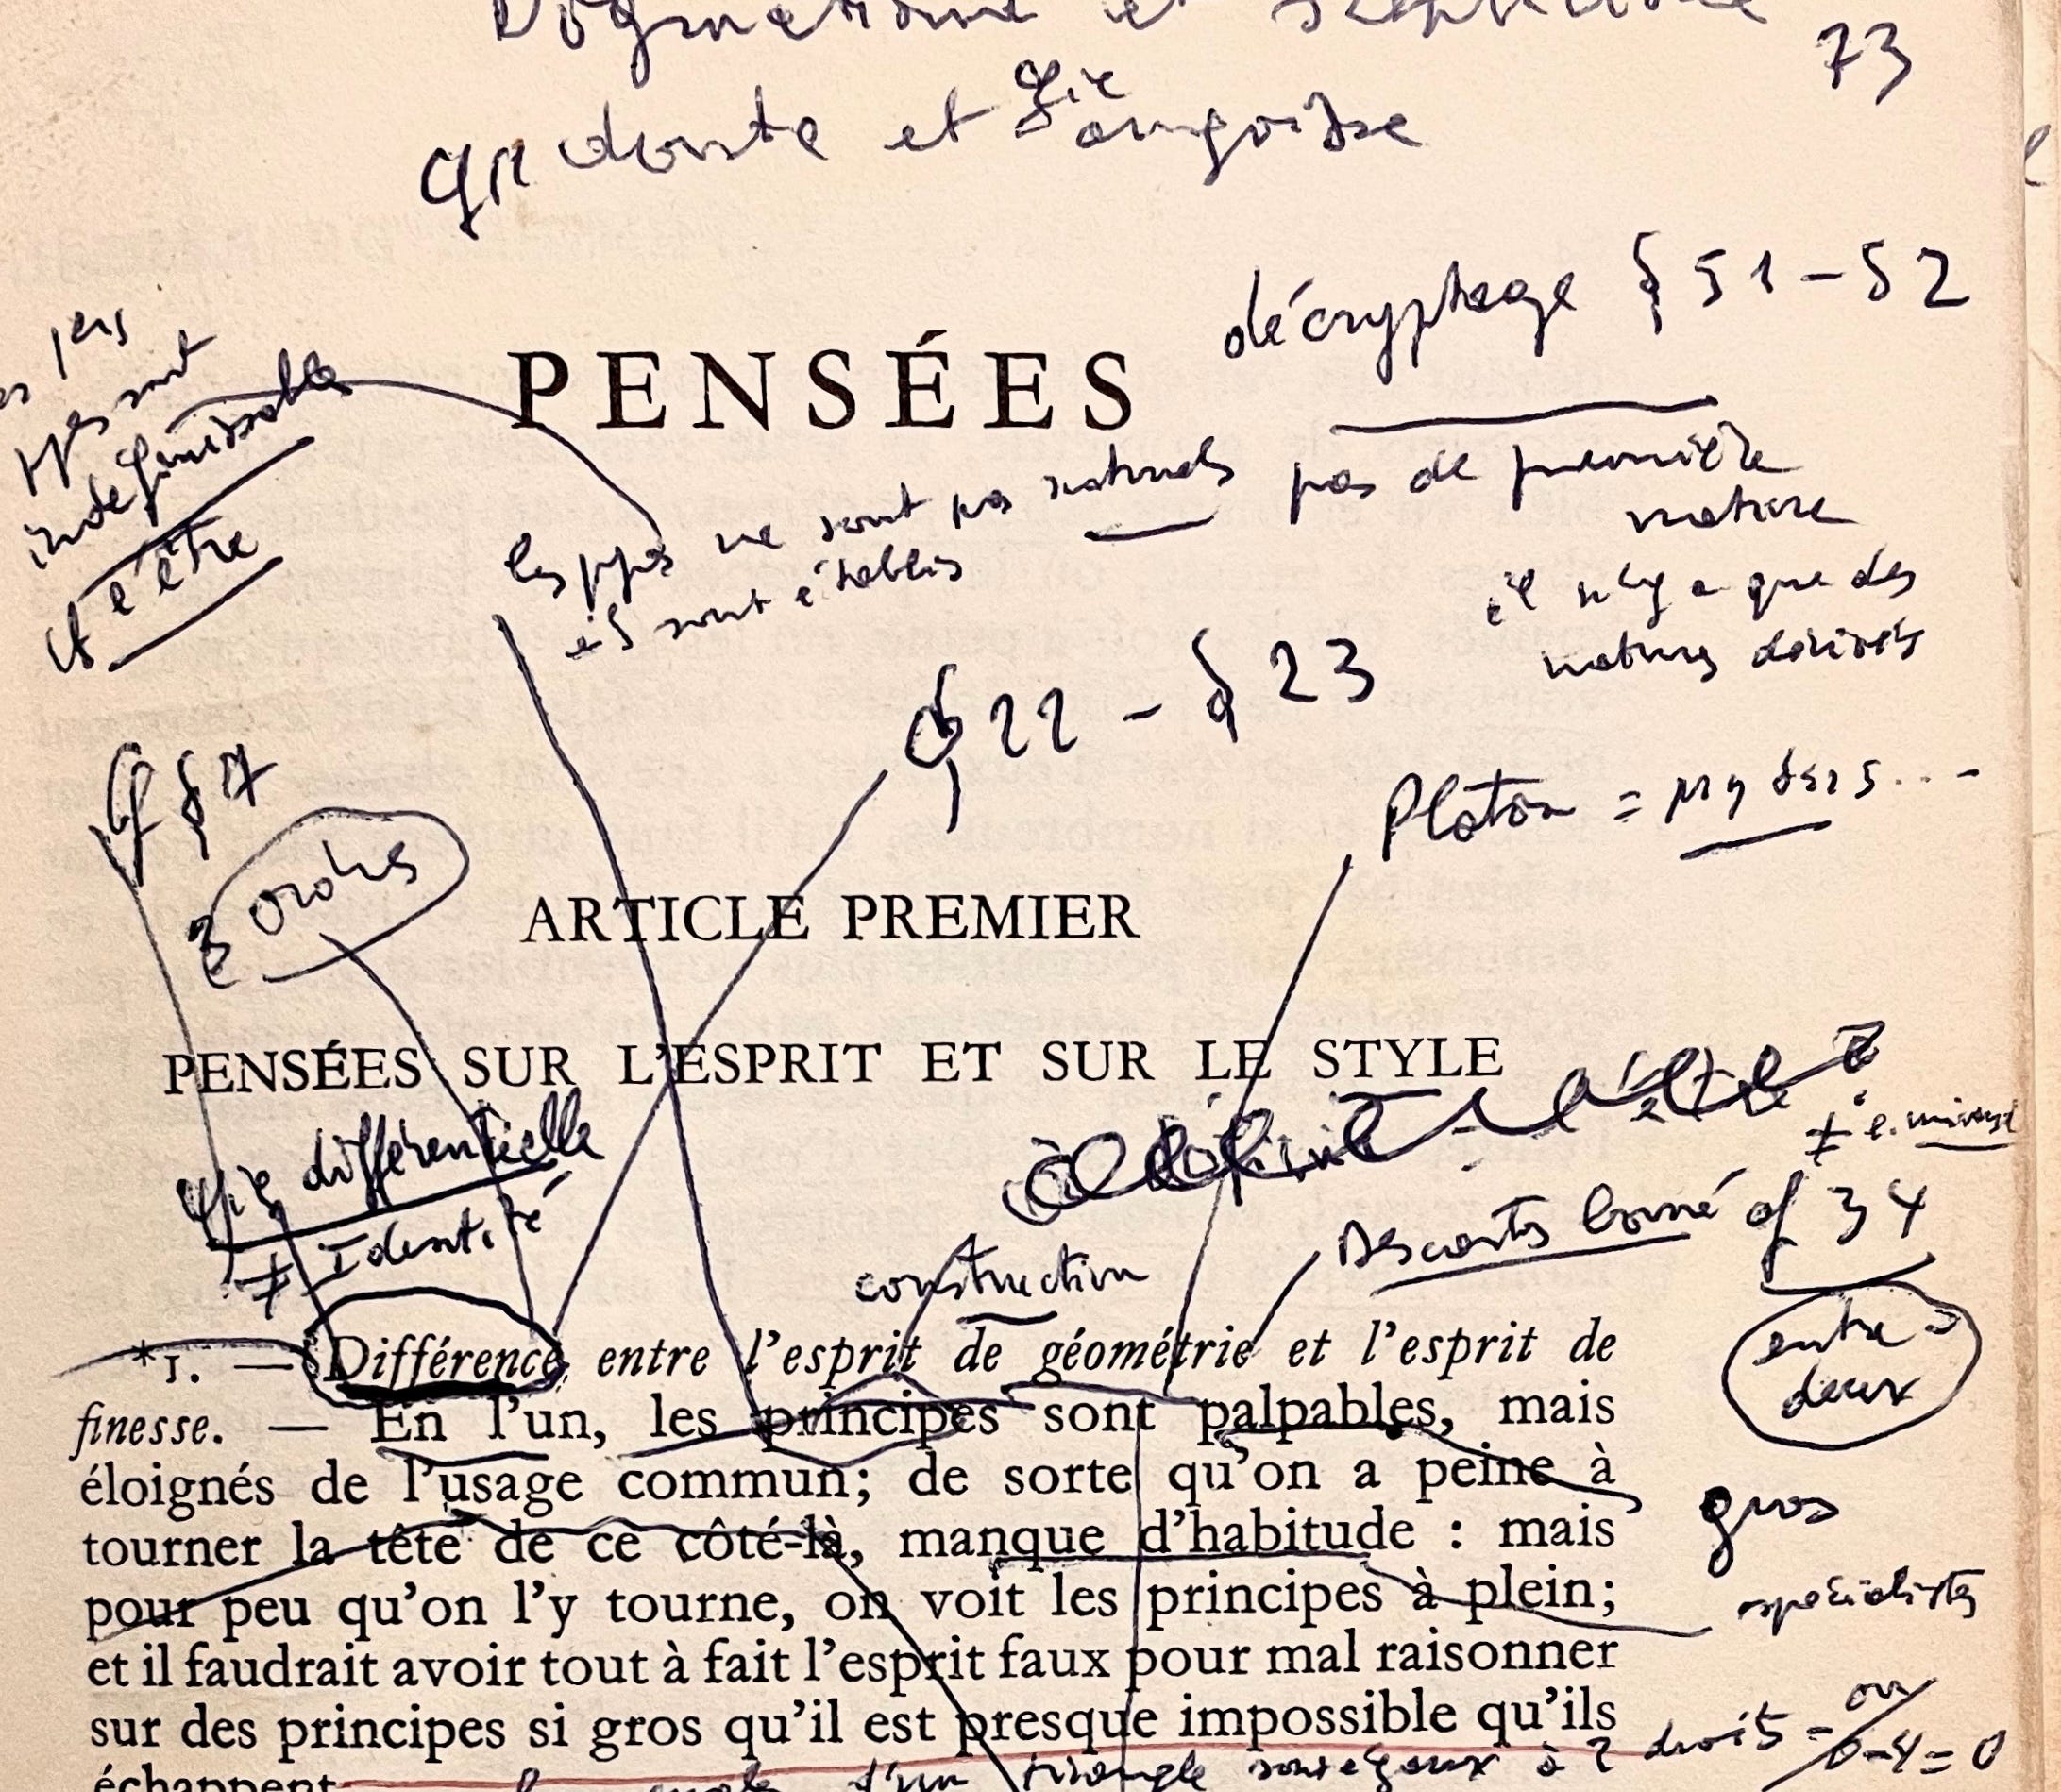 Dogmatisme et
73
doute et angoisse
décryphage § 51 - 52
PENSÉES
indéfinissable
l'être
les ppes ne sont pas naturels
ils sont établis
pas de première
nature
il n'y a que des
natures dérivées
§ 22 - § 23
Cf § 17
3 ordres
Platon =
ARTICLE PREMIER
PENSÉES SUR L'ESPRIT ET SUR LE STYLE
différentielle
≠ Identité
construction
Descartes borné cf 34
entre-
deux
*1. — Différence entre l'esprit de géométrie et l'esprit de
finesse. — En l'un, les principes sont palpables, mais
éloignés de l'usage commun; de sorte qu'on a peine à
tourner la tête de ce côté-là, manque d'habitude : mais
gros
pour peu qu'on l'y tourne, on voit les principes à plein;
spécialistes
et il faudrait avoir tout à fait l'esprit faux pour mal raisonner
sur des principes si gros qu'il est presque impossible qu'ils
échappent.
d'un triangle sont égaux à 2 droits - ou
0-4=0